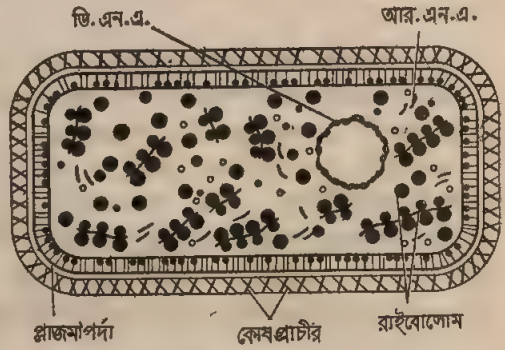 ডি. এন. এ.
আর. এন. এ.
প্লাজমাপর্দা
কোষপ্রাচীর
রাইবোসোম